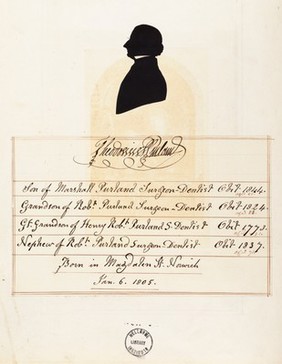 Theodosius Purland
Son of Marshall Purland Surgeon-Dentist Obit 1844.
Grandson of Robt. Purland Surgeon-Dentist Obit 1824.
Gt. Grandson of Henry Robt. Purland S. Dentist Obit 1773.
Nephew of Robt. Purland Surgeon-Dentist Obit 1837.
Born in Magdalen St. Norwich
Jan. 6. 1805.